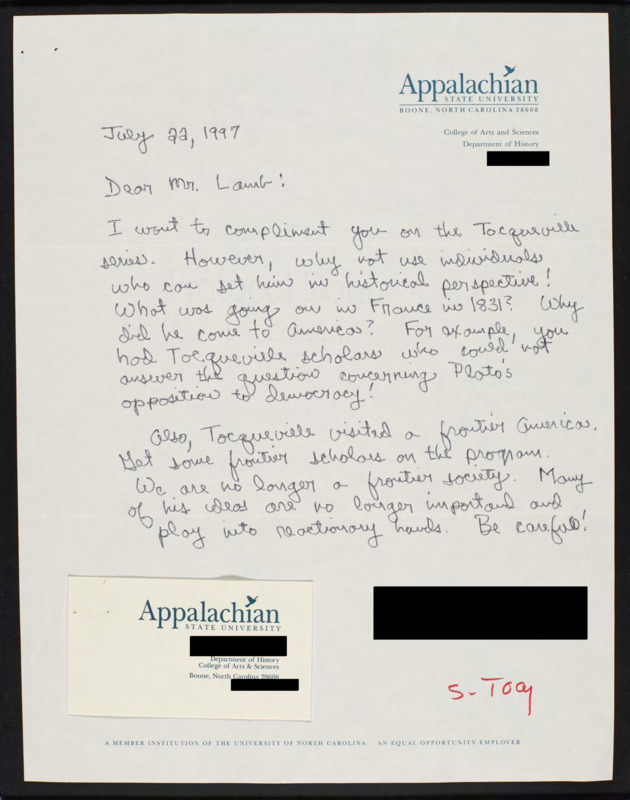 Appalachian
STATE UNIVERSITY
BOONE, NORTH CAROLINA 28608
College of Arts and Sciences
Department of History
July 22, 1997
Dear Mr. Lamb:
I want to compliment you on the Tocqueville
series. However, why not use individuals
who can set him in historical perspective!
What was going on in France in 1831? Why
did he come to America? For example, you
had Tocqueville scholars who could not
answer the question concerning Plato's
opposition to democracy!
Also, Tocqueville visited a frontier America.
Get some frontier scholars on the program.
We are no longer a frontier society. Many
of his ideas are no longer important and
play into reactionary hands. Be careful!
Appalachian
STATE UNIVERSITY
Department of History
College of Arts & Sciences
Boone, North Carolina 28608
S-Tocq
A MEMBER INSTITUTION OF THE UNIVERSITY OF NORTH CAROLINA AN EQUAL OPPORTUNITY EMPLOYER